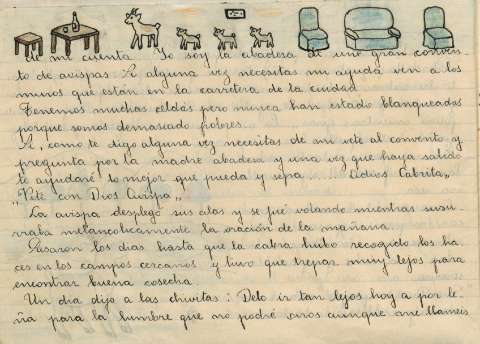 de mi cuenta. Yo soy la abadesa de un gran conven-
to de avispas. Si alguna vez necesitas mi ayuda ven a los
muros que están en la carretera de la ciudad
Tenemos muchas celdas pero nunca han estado blanqueadas
porque somos demasiado pobres.
Si, como te digo alguna vez necesitas de mi vete al convento y
pregunta por la madre abadesa y una vez que haya salido
te ayudaré lo mejor que pueda y sepa Adios Cabrita„
„Vete con Dios Avispa„
La avispa desplegó sus alas y se fué volando mientras susu-
rraba melancolicamente la oración de la mañana.
Pasaron los dias hasta que la cabra hubo recogido los ha-
ces en los campos cercanos y tuvo que trepar muy lejos para
encontrar buena cosecha.
Un dia dijo a las chivitas: Debo ir tan lejos hoy a por le-
ña para la lumbre que no podré oiros aunque me llameis